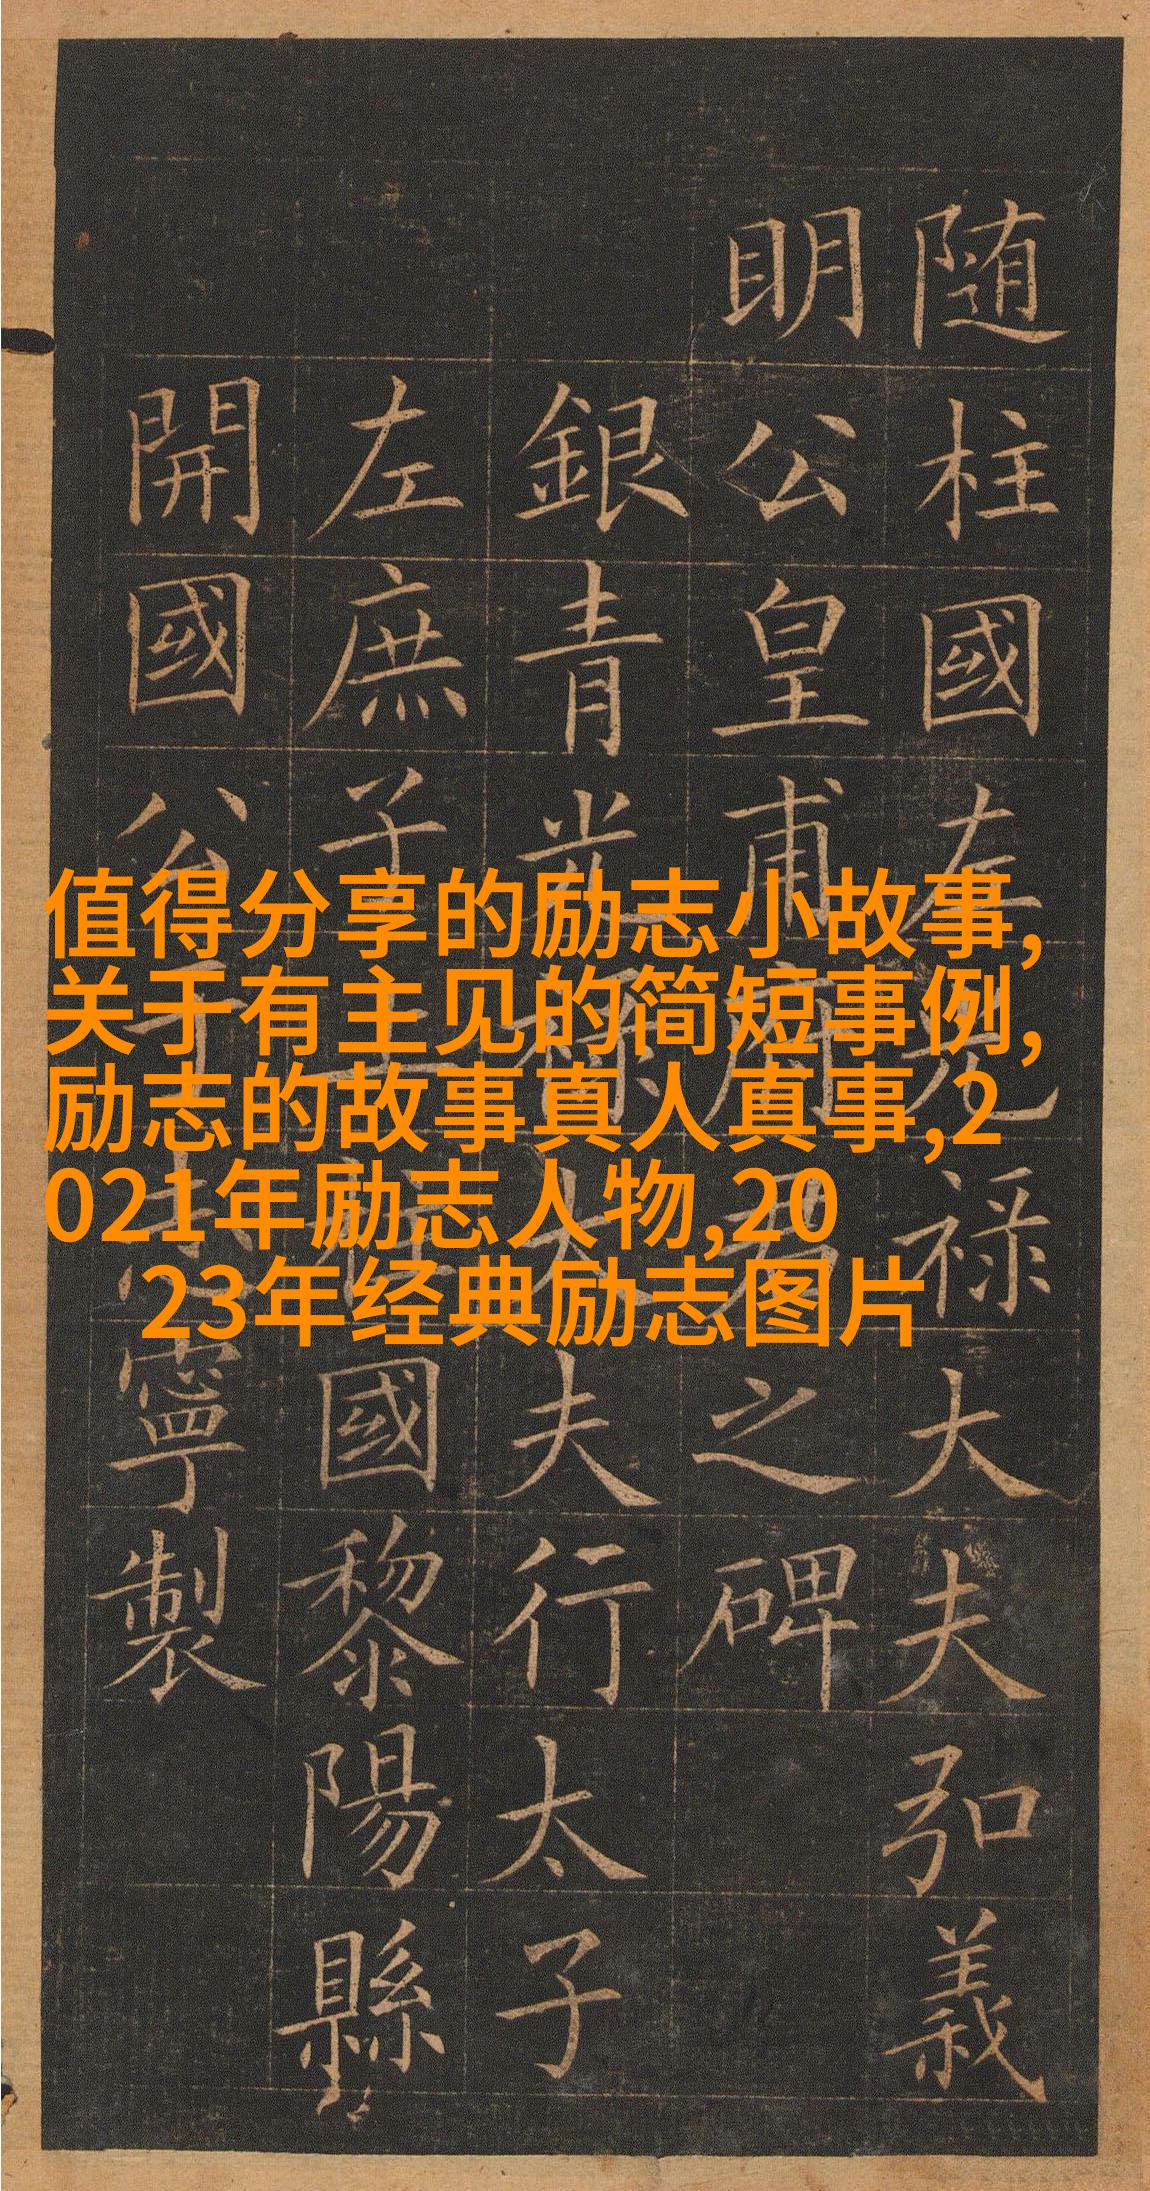 随柱國左光禄大夫弘義
明公皇甫府君之碑
銀青光禄大夫行太子
左庶子上柱國黎陽縣
開國公于志寧製
值得分享的励志小故事,
关于有主见的简短事例,
励志的故事真人真事,2
021年励志人物,20
23年经典励志图片